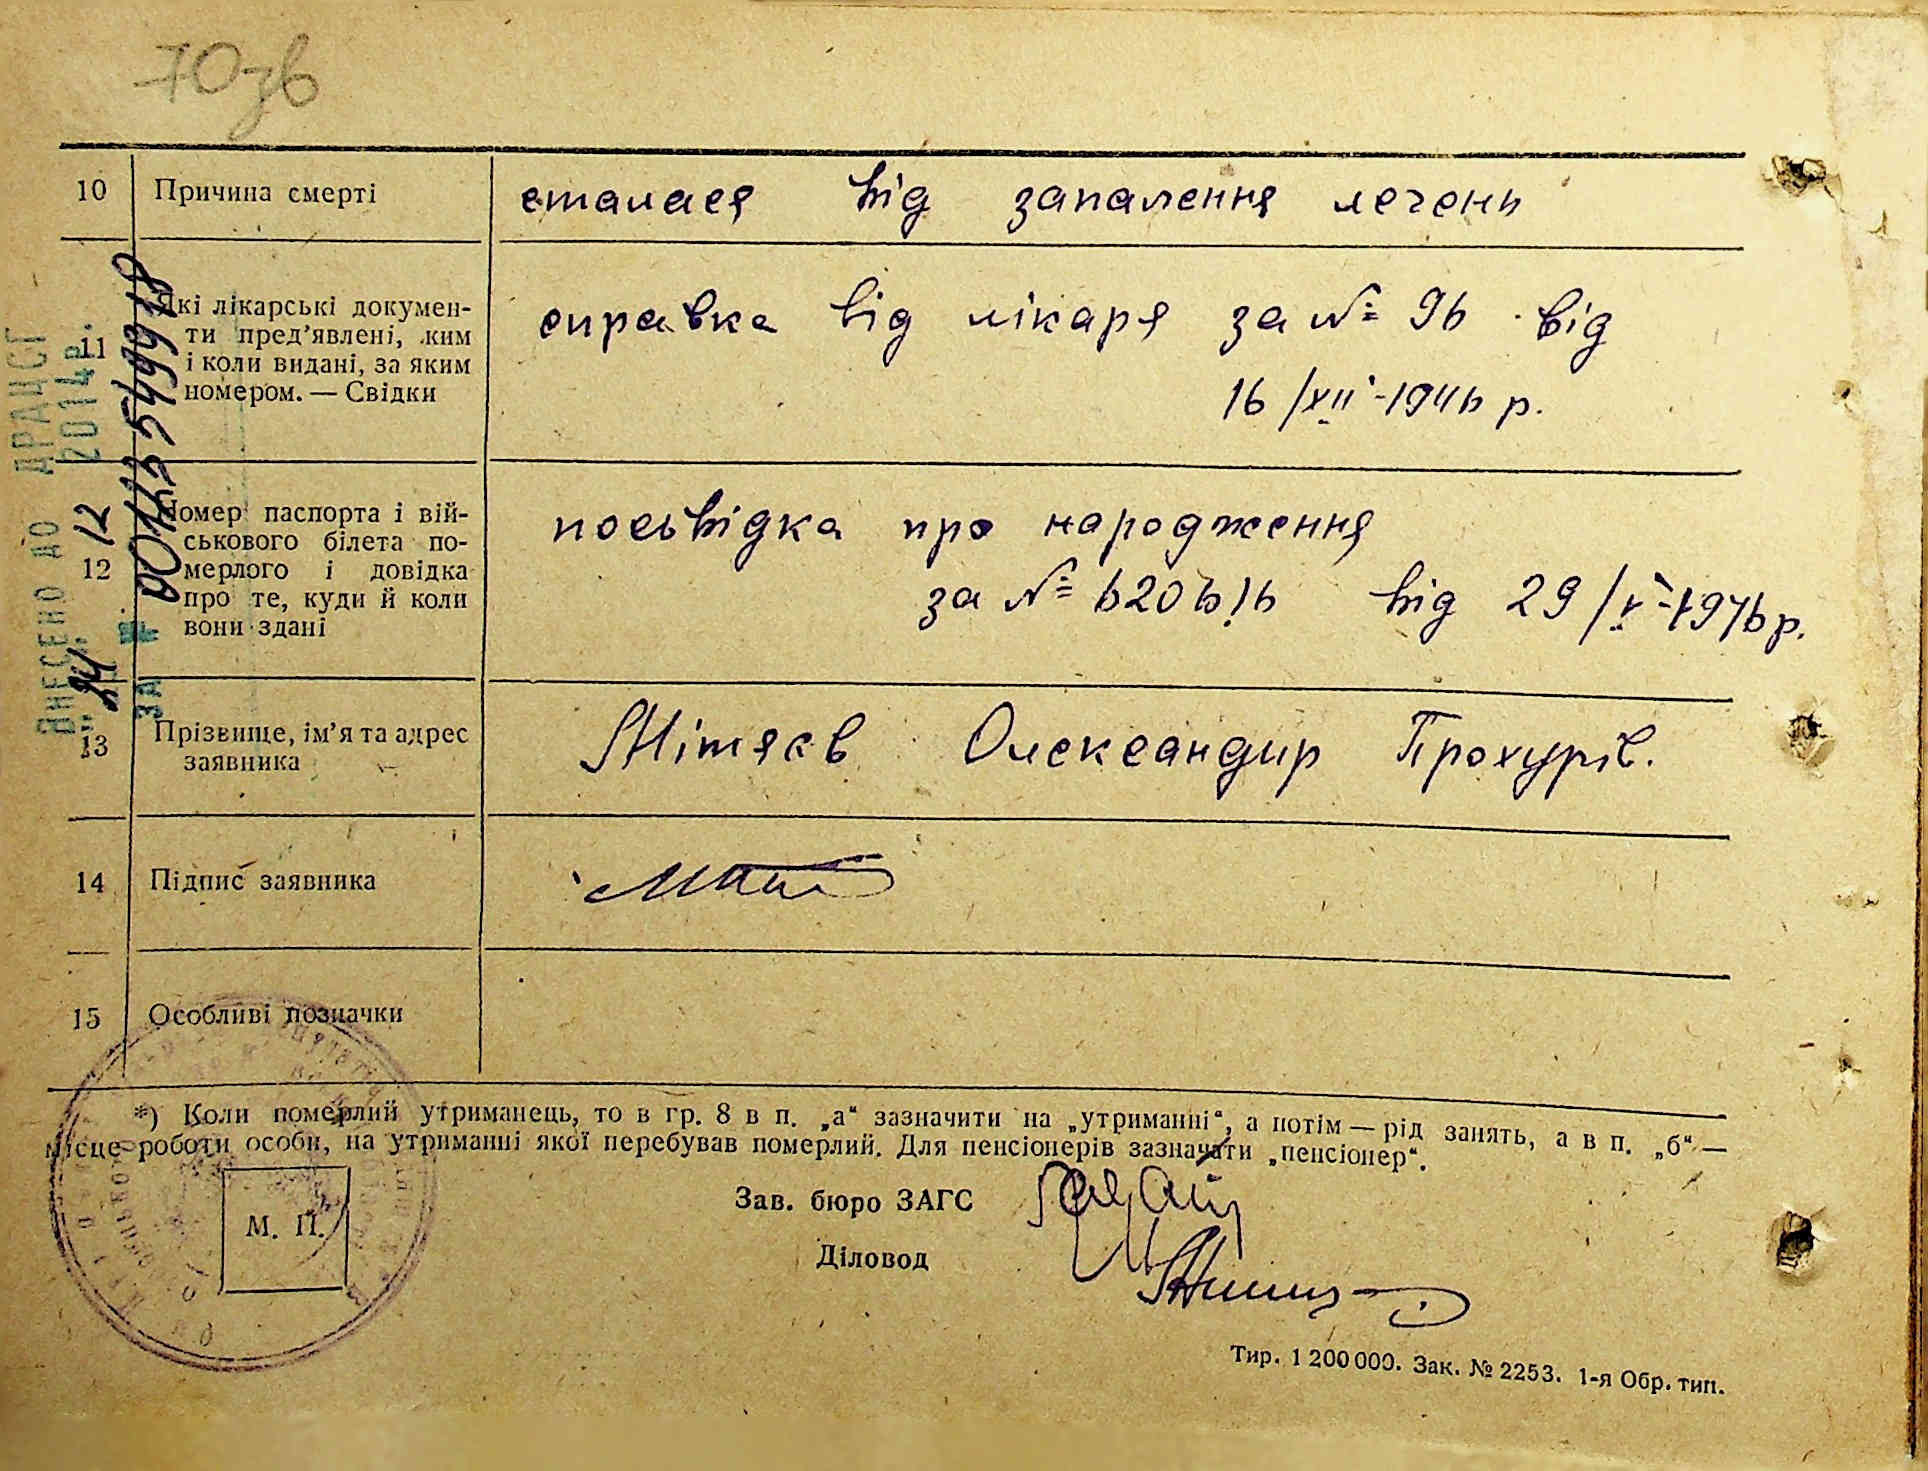 70зв
10 Причина смерті сталася від запалення легень
11 Які лікарські докумен-
ти пред’явлені, ким
і коли видані, за яким
номером. — Свідки
справка від лікаря за № 96 від
16/XII-1946 р.
12 Номер паспорта і вій-
ськового білета по-
мерлого і довідка
про те, куди й коли
вони здані
посьвідка про народження
за № 620616 від 29/V-1946 р.
13 Прізвище, ім’я та адрес
заявника
Мітяєв Олександир Прохурів.
14 Підпис заявника
15 Особливі позначки
*) Коли померлий утриманець, то в гр. 8 в п. „а“ зазначити на „утриманні“, а потім — рід занять, а в п. „б“ —
місце роботи особи, на утриманні якої перебував померлий. Для пенсіонерів зазначати „пенсіонер“.
М. П.
Зав. бюро ЗАГС
Діловод
Тир. 1 200 000. Зак. № 2253. 1-я Обр. тип.
ВНЕСЕНО ДО ДРАЦСГ
„24“ 12 2014р.
ЗА №